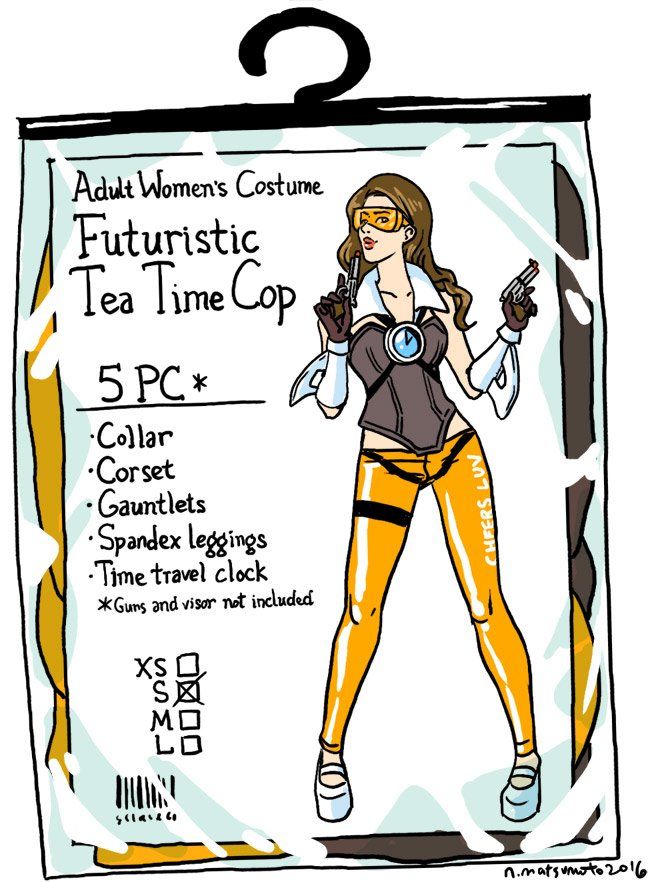 Adult Women's Costume
Futuristic
Tea Time Cop
5 PC *
· Collar
· Corset
· Gauntlets
· Spandex leggings
· Time travel clock
* Guns and visor not included
CHEERS LUV
XS
S
M
L
n.matsumoto 2016